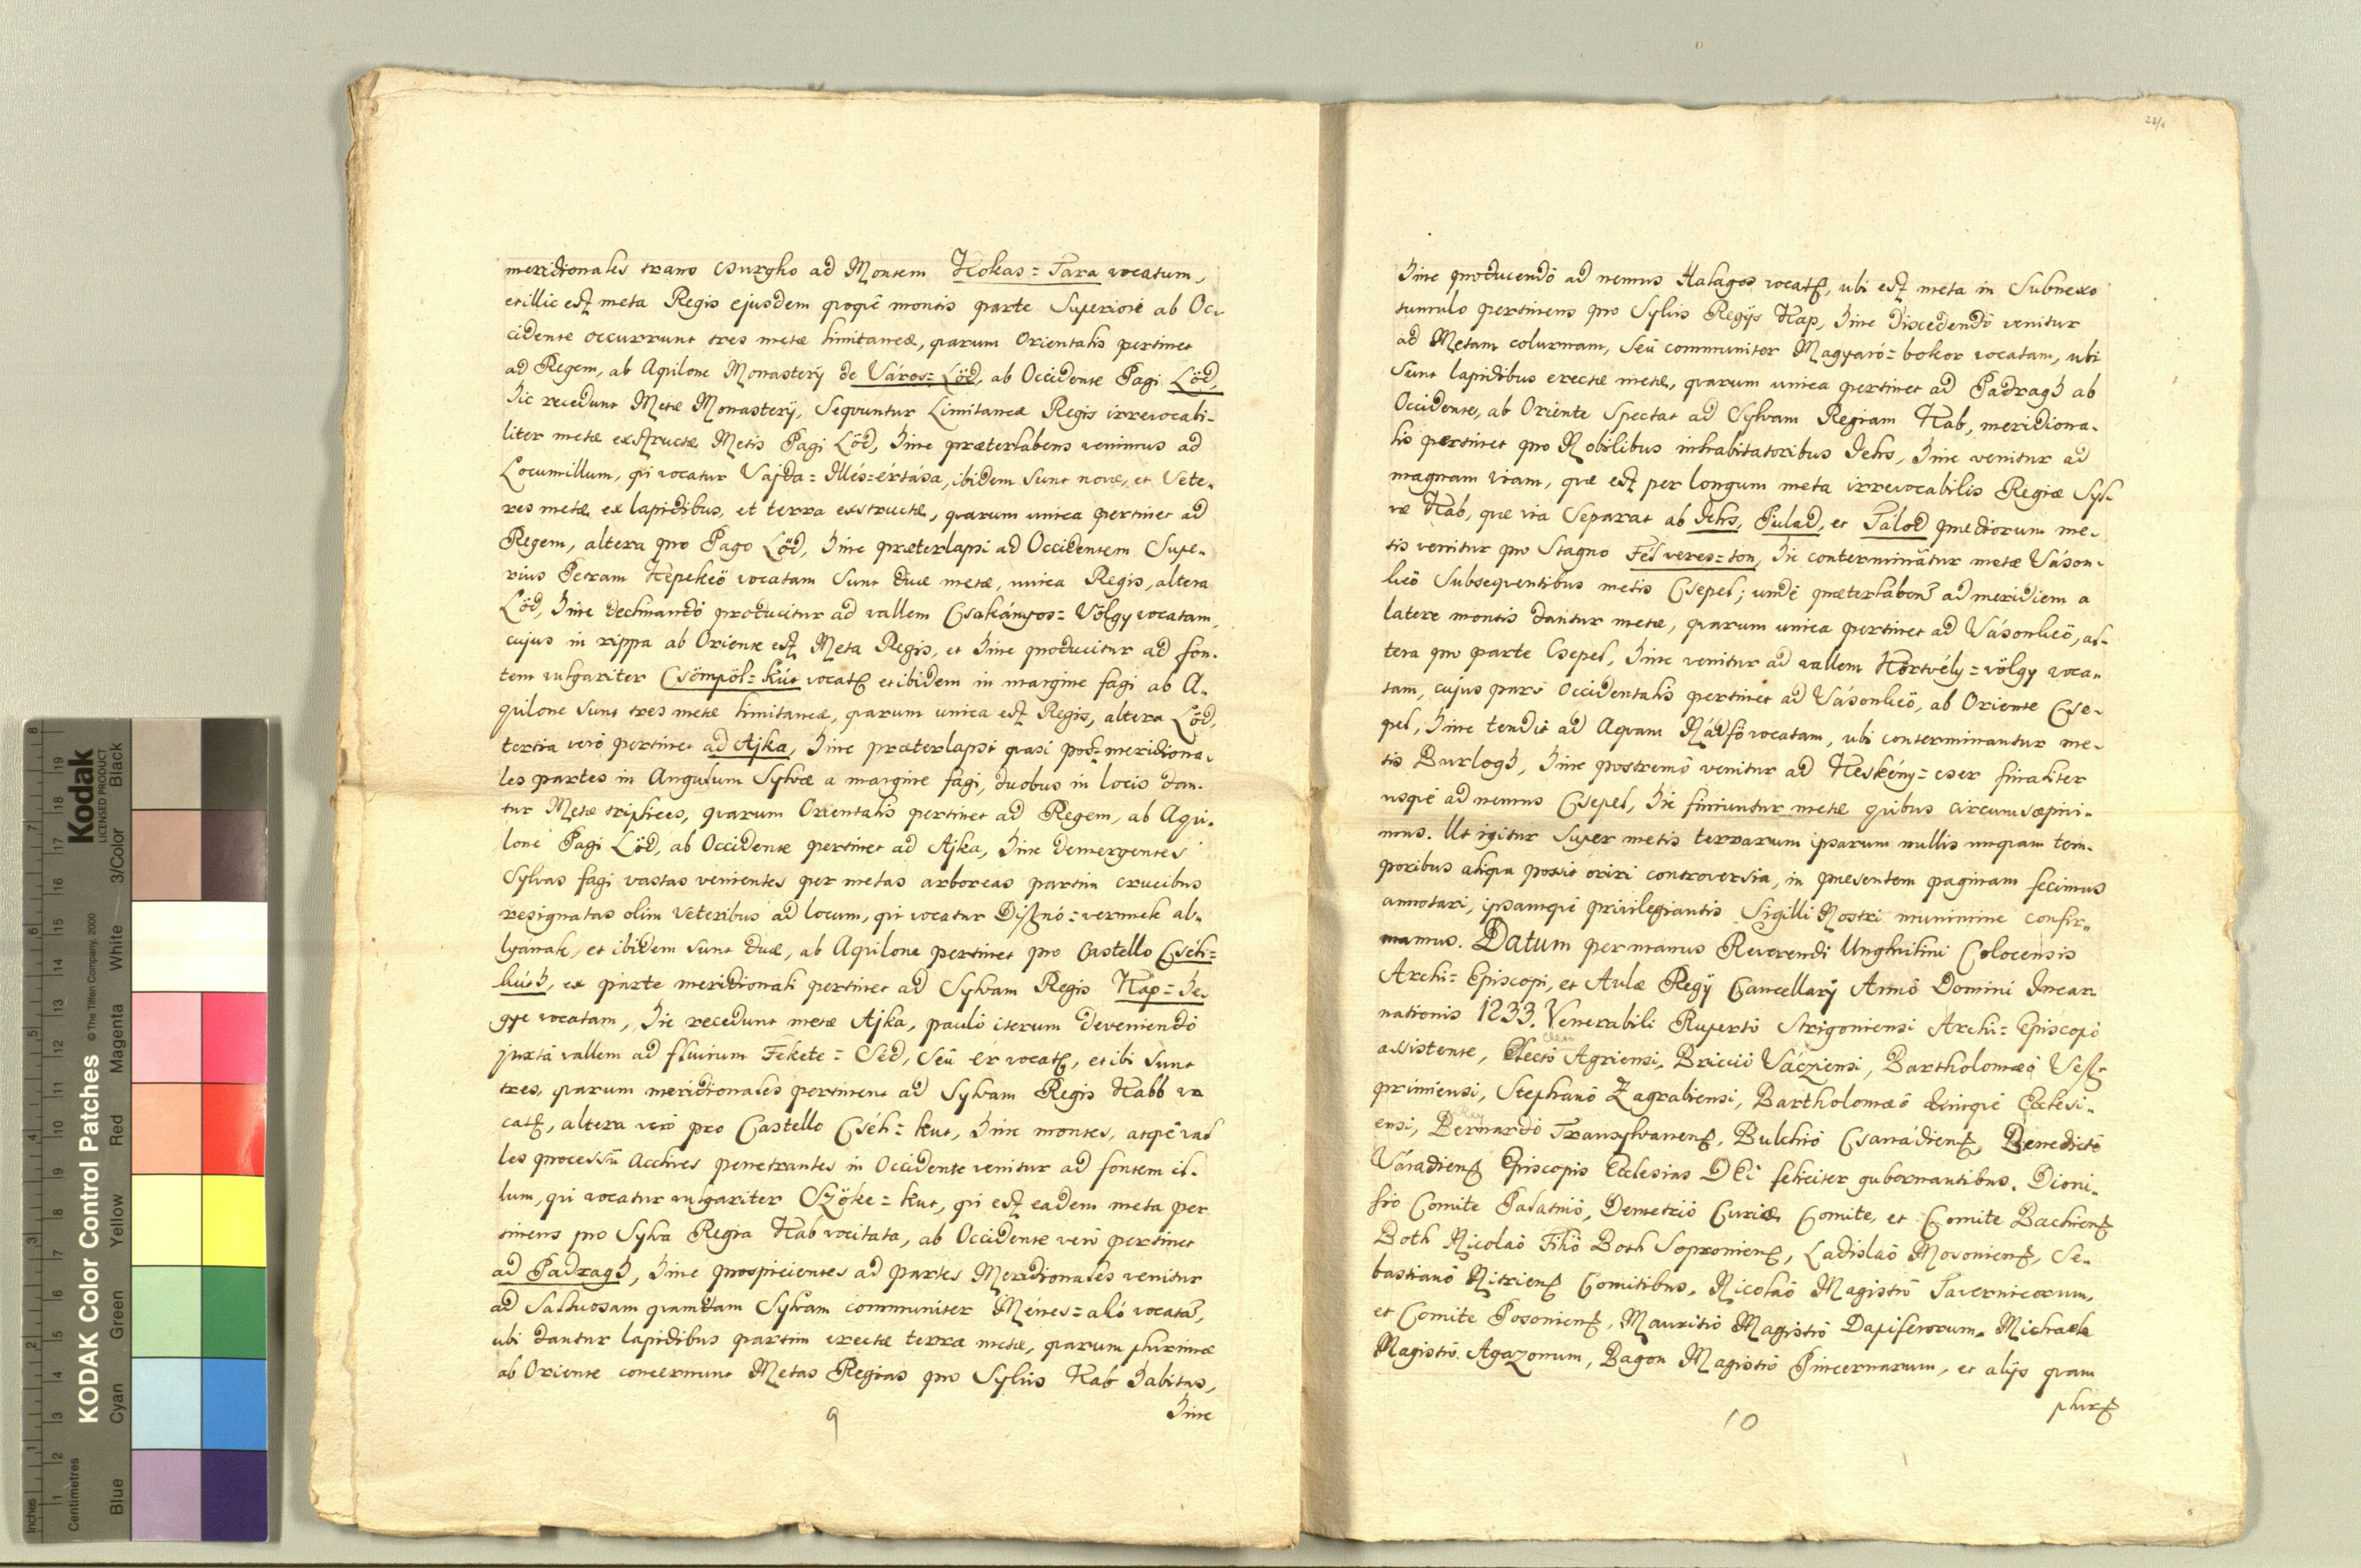 meridionales trans Csurgho ad Montem Kokas=Tara vocatum,
et illic est meta Regis ejusdem quoque montis parte Superiore ab Oc-
cidente occurrunt tres metæ limitaneæ, quarum Orientalis pertinet
ad Regem, ab Aquilone Monasterÿ de Város=Löd, ab Occidente Pagi Löd,
hic recedunt Metæ Monasterÿ, Sequuntur Limitaneæ Regis irrevocabi-
liter metæ exstructæ Metis Pagi Löd, hinc præterlabens venimus ad
Locum illum, qui vocatur Vajda=Illés=értása, ibidem sunt novæ, et Vete-
res metæ ex lapidibus, et terra exstructæ, quarum unica pertinet ad
Regem, altera pro Pago Löd, hinc præterlapsi ad Occidentem Supe-
rius Petram Képekeö vocatam sunt duæ metæ, unica Regis, altera
Löd, hinc declinandō producitur ad vallem Csakányos=Völgy vocatam,
cujus in rippa ab Oriente est Meta Regis, et hinc producitur ad fon-
tem vulgariter Csömpöl=kút vocatū et ibidem in margine fagi ab A-
quilone sunt tres metæ limitaneæ, quarum unica est Regis, altera Löd,
tertia verò pertinet ad Ajka, hinc præterlapsi quasi post meridiona-
les partes in Angulum Sylvæ a margine fagi, duobus in locis dan-
tur Metæ triplices, quarum Orientalis pertinet ad Regem, ab Aqui-
lone Pagi Löd, ab Occidente pertinet ad Ajka, hinc demergentes
Sylvas fagi vastas venientes per metas arboreas partim crucibus
resignatas olim Veteribus ad locum, qui vocatur Dißnó=vermek al-
lyának, et ibidem sunt duæ, ab Aquilone pertinet pro Castello Cséh=
kúth, ex parte meridionali pertinet ad Sylvam Regis Kap=he-
gye vocatam, hic recedunt metæ Ajka, paulò iterum deveniendō
juxtà vallem ad fluvium Fekete=Séd, Seū er vocatū, et ibi sunt
tres, quarum meridionales pertinent ad Sylvam Regis Kabb vo
catū, altera verò pro Castello Cséh=kut, hinc montes, atque val
les processū Acclives penetrantes in Occidente venitur ad fontem il-
lum, qui vocatur vulgariter Szöke=kut, qui est eadem meta per
tinens pro Sylva Regia Kab vocitata, ab Occidente verò pertinet
ad Padragh, hinc prospicientes ad partes Meridionales venitur
ad Saltuosam quamdam Sylvam communiter Ménes=aló vocatā,
ubi dantur lapidibus partim erectæ terra metæ, quarum plurimæ
ab Oriente concernunt Metas Regias pro Sylvis Kab habitas,
hinc
9
28/1
hinc producendō ad nemus Halagos vocatū, ubi est meta in Subnexo
tumulo pertinens pro Sylvis Regÿs Kap, hinc discedendō venitur
ad Metam colurnam, Seū communiter Magyaró=bokor vocatam, ubi
sunt lapidibus erectæ metæ, quarum unica pertinet ad Padragh ab
Occidente, ab Oriente Spectat ad Sylvam Regiam Kab, meridiona-
lis pertinet pro Nobilibus inhabitatoribus Jehs, hinc venitur ad
magnam viam, quæ est per longum meta irrevocabilis Regiæ Syl-
væ Kab, quæ via Separat ab Jehs, Pulad, et Tálod prædiorum me-
tis venitur pro Stagno Félveres=ton, hic conterminātur metæ Váson-
lieö Subsequentibus metis Csepel; undē præterlabens ad meridiem a
latere montis dantur metæ, quarum unica pertinet ad Vásonlieö, al-
tera pro parte Csepel, hinc venitur ad vallem Körtvély=völgy voca-
tam, cujus pars Occidentalis pertinet ad Vásonlieö, ab Oriente Cse-
pel, hinc tendit ad Aquam Nádfö vocatam, ubi conterminantur me-
tis Burlogh, hinc postremō venitur ad Keskény=eser finaliter
usquè ad nemus Csepel, hic finiuntur metæ quibus circumsæpivi-
mus. Ut igitur Super metis terrarum ipsarum nullis unquam tem-
poribus aliqua possit oriri controversia, in præsentem paginam fecimus
annotari, ipsamquè privilegiantis Sigilli Nostri munimine confir-
mamus. Datum per manus Reverendi Unghvitini Colocensis
Archi=Episcopi, et Aulæ Regÿ Cancellarÿ Annō Domini Incar-
nationis 1233. Venerabili Rupertō Strigoniensi Archi=Episcopō
assistente, Electō Agriensi, Bricciō Vácziensi, Bartholomæō Veß-
primiensi, Stephanō Zagrabiensi, Bartholomæō Quinque Ecclesi-
ensi, Bernardō Transylvanens, Bulchiō Csanádiens, Benedictō
Váradiens Episcopis Ecclesias DEi feliciter gubernantibus. Dioni-
siō Comite Palatinō, Demetriō Curiæ Comite, et Comite Bachiens
Both Nicolaō Filiō Both Soproniens, Ladislaō Mosoniens, Se-
bastianō Nitriens Comitibus, Nicolaō Magistrō Tavernicorum,
et Comite Posoniens, Mauritiō Magistrō Dapiferorum, Michaele
Magistrō Agazonum, Bagon Magistrō Pincernarum, et alÿs quam
plur
10